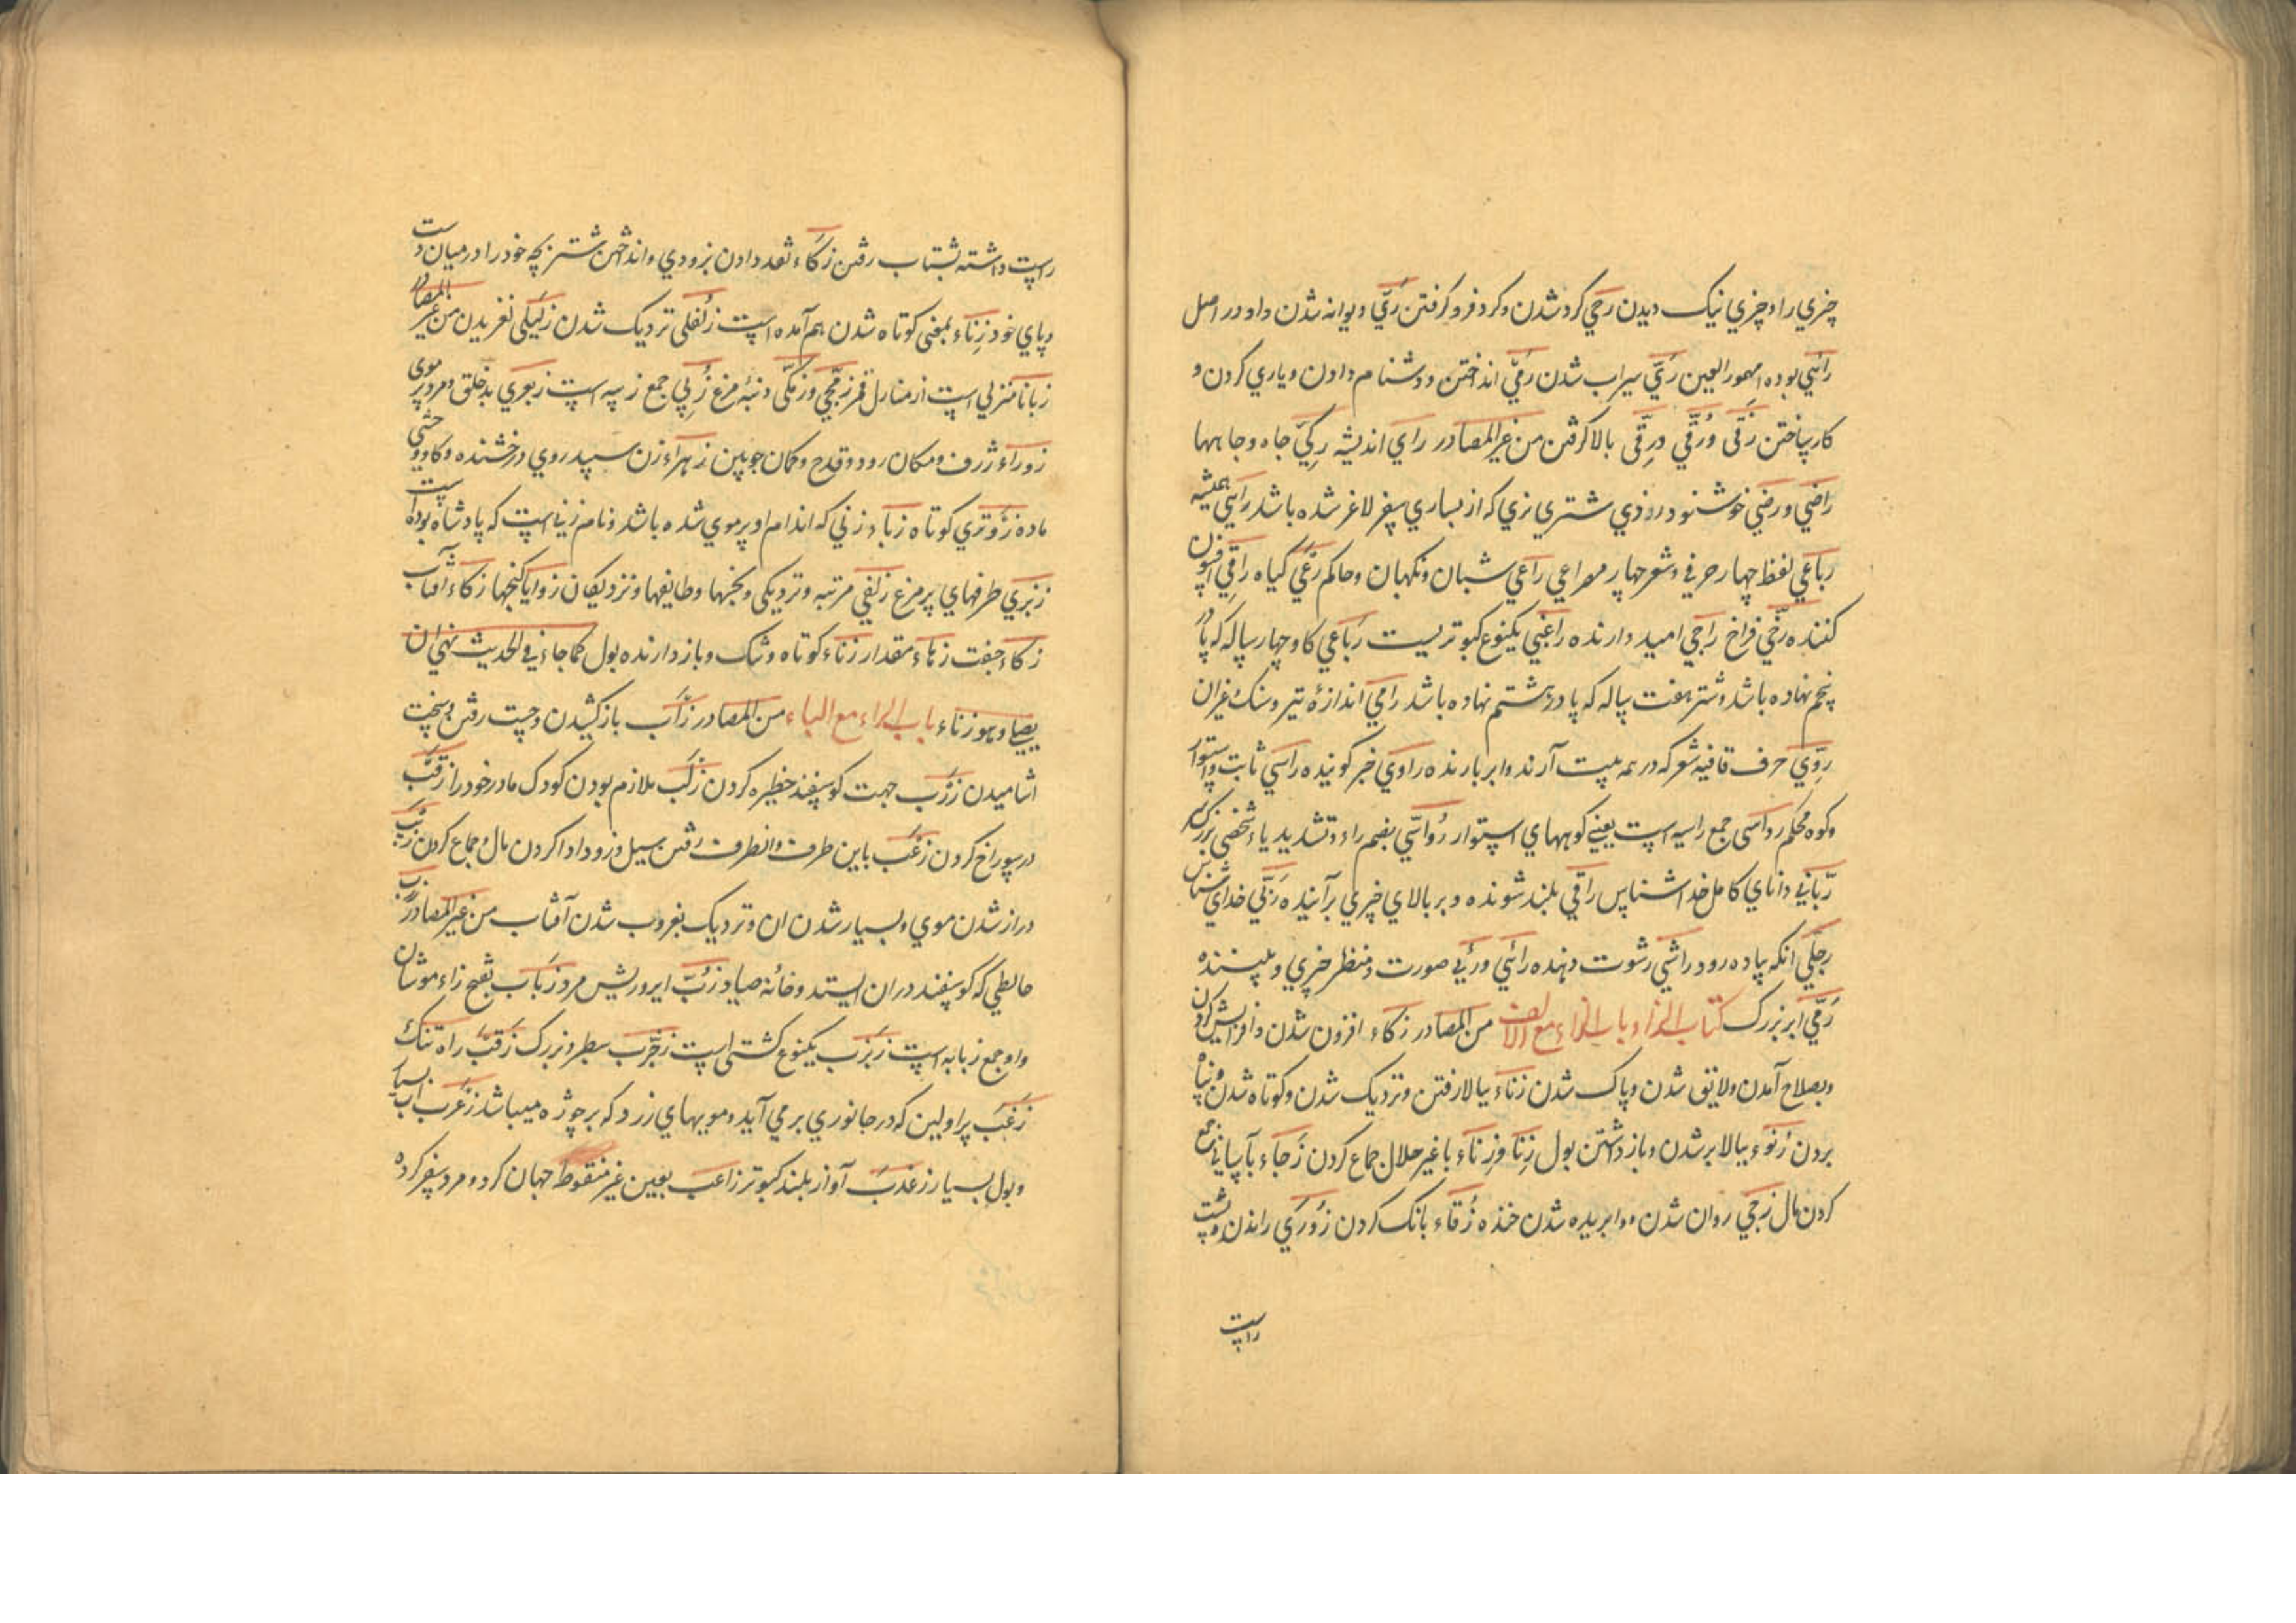 چیزي را و چیزي نیک دیدن رحي کرد شدن و کرد فرو کرفتن رَيّ دیوانه شدن و او در اصل
رائي بوده مهموز العین رَيّ سیراب شدن رَمي انداختن و دشنام دادن و یاري کردن و
کار ساختن رَقی و رُقي و رِقی بالا کرفتن من غیر المصادر راي اندیشه رکيّ چاه و چاهها
راضي و رضي خوشنود رذي شتري نري که از بسیاري سفر لاغر شده باشد راسي همیشه
رباعي لفظ چهار حرفي و شعر چهار مصراعي راعي شبان و نکهبان و حاکم رعي کیاه راقي افسون
کننده رخي فراخ راجي امید دارنده راغبي یکنوع کبوتریست رباعي کاو چهار ساله که پا در
پنجم نهاده باشد و شتر هفت ساله که پا در هشتم نهاده باشد رامي اندازهٔ تیر و سنک و غیر ان
رويّ حرف قافیه شعر که در همه بیت آرند و ابر بارنده راوي خبر کوینده راسي ثابت و استوار
و کوه محکم رواسی جمع راسیه است یعني کوههاي استوار رُواسّي بضم راء و تشدید یاء شخصي بزرک سر
ربّاني داناي کامل خدا شناس راقي بلند شونده و بر بالاي چیزي برآینده ربّي خداي شناس
رجلي انکه پیاده رود راشي رشوت دهنده رائي و رئي صورت و منظر چیزي و بیننده
رمي ابر بزرک کتاب الزاء باب الزاء مع الالف من المصادر زکاء افزون شدن و افزایش کردن
و بصلاح آمدن و لایق شدن و پاک شدن زناء ببالا رفتن و نزدیک شدن و کوتاه شدن و پناه
بردن زنوء ببالا بر شدن و باز داشتن بول زِنا و زِناء با غیر حلال جماع کردن زجاء بآساني جمع
کردن مال زجي روان شدن و وا بریده شدن خنده زقاء بانک کردن زوري راندن و پشت
راست
راست داشته بشتاب رفتن زکاء نقد دادن بزودي و انداختن شتر بچه خود را در میان دست
و پاي خود زناء بمعنی کوتاه شدن هم آمده است زلفی نزدیک شدن من غیر المصادر
زبانا منزلي است از منازل قمر زمجّي و زمکّی دنبهٔ مرغ زبي جمع زبیه است زبعري بدخلق و مرد پر موی
زوراء ژرف و مکان رود و قدح و کمان چوبین زهراء زن سپید روي درخشنده و کاو وحشي
ماده کوتاه زباء زني که اندام او پر موي شده باشد و نام زني است که پادشاه بوده است
طرفهاي پر مرغ زلفي مرتبه و نزدیکی و طایفها و نزدیکان زوایا کنجها زکاء آفتاب
زکاء جفت زهاء مقدار زناء کوتاه و تنک و باز دارنده بول کما جاء في الحدیث نهي ان
یصلي و هو زناء باب الزاء مع الباء من المصادر زأب باز کشیدن و چست رفتن و سخت
اشامیدن زرب جهت کوسفند حظیره کردن زکب ملازم بودن کودک مادر خود را زقب
در سوراخ کردن زعب باین طرف و انطرف رفتن سیل و زود ادا کردن مال و جماع کردن
دراز شدن موي و بسیار شدن ان و نزدیک بغروب شدن آفتاب من غیر المصادر زرب
حایطي که کوسفند در ان ایستد و خانهٔ صیاد زبّ ایر و ریش مرد زباب بفتح زاء موشان
و او جمع زبابه است زبزب یکنوع کشتي است سطبر و بزرک زقب راه تنک
زغب پر اولین که در جانوري بر مي آید و مویهاي زرد که بر چوژه میباشد زغرب آب بسیار
و بول بسیار زغدب آواز بلند کبوتر زاعب بعین غیر منقوط جهان کرد و مرد سفر کرده